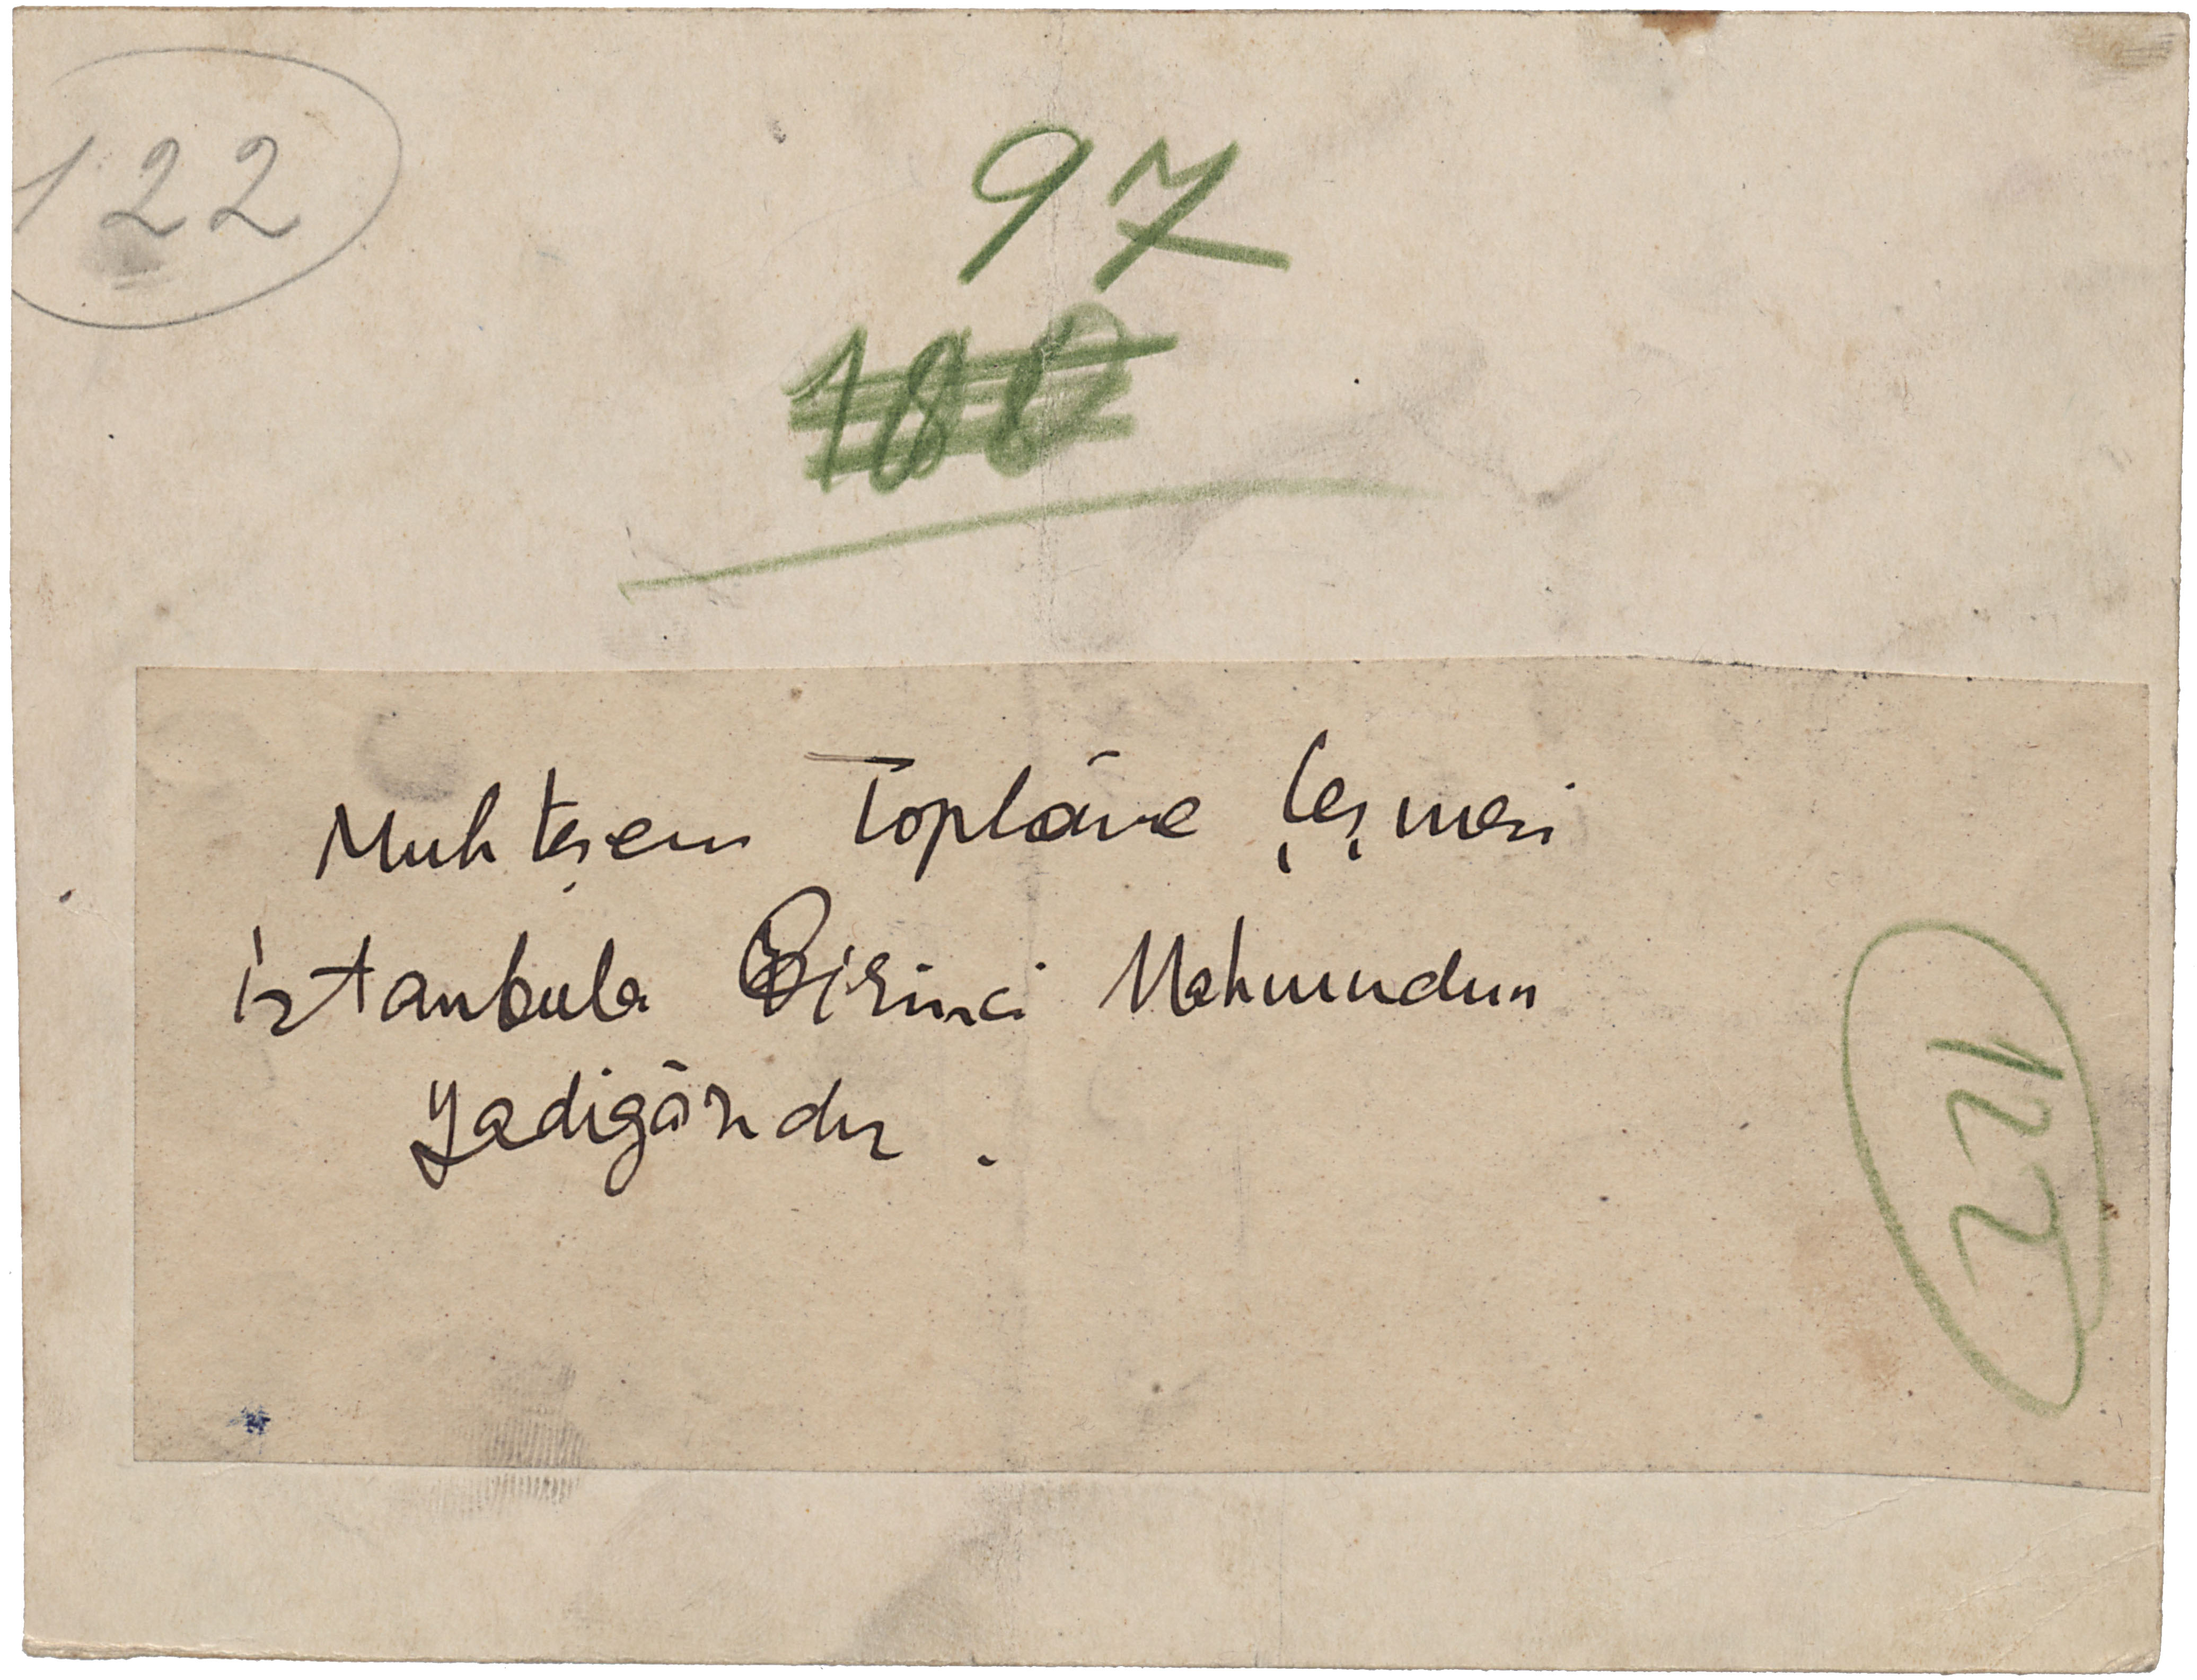 122
97
Muhteşem Tophâne Çeşmesi
İstanbula Birinci Mahmudun
Yadigârıdır .
122